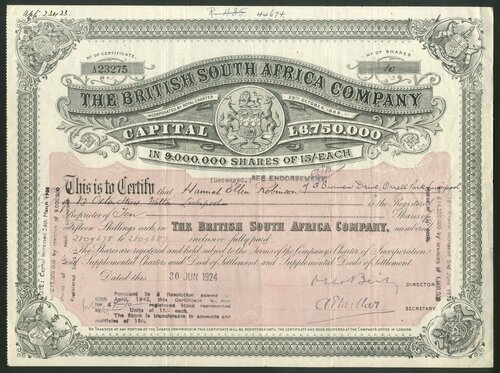 44674
Nº OF CERTIFICATE
A23275
Nº OF SHARES
10
THE BRITISH SOUTH AFRICA COMPANY
INCORPORATED BY ROYAL CHARTER 29TH OCTOBER 1889
CAPITAL £6,750,000
IN 9,000,000 SHARES OF 15/- EACH
(Deceased) SEE ENDORSEMENT
This is to Certify that Hannah Ellen Robinson of 3 Drive, Orrell
Liverpool is the Registered
Proprietor of Ten Shares of
Fifteen Shillings each in THE BRITISH SOUTH AFRICA COMPANY, numbered
2809678 to 2809687 inclusive fully paid
The Shares are issued and held subject to the Terms of the Company's Charter of Incorporation
Supplemental Charters and Deed of Settlement and Supplemental Deeds of Settlement.
Dated this 30 JUN 1924
DIRECTOR
SECRETARY
Pursuant to a Resolution passed
30th April, 1942, this Certificate is now
for £7-10 registered Stock represented
by Units of 15/- each.
The Stock is transferable in amounts and
multiples of 15/-.
NO TRANSFER OF ANY PORTION OF THE SHARES COMPRISED IN THIS CERTIFICATE WILL BE REGISTERED UNTIL THE CERTIFICATE HAS BEEN DELIVERED AT THE COMPANY'S OFFICE, IN LONDON.